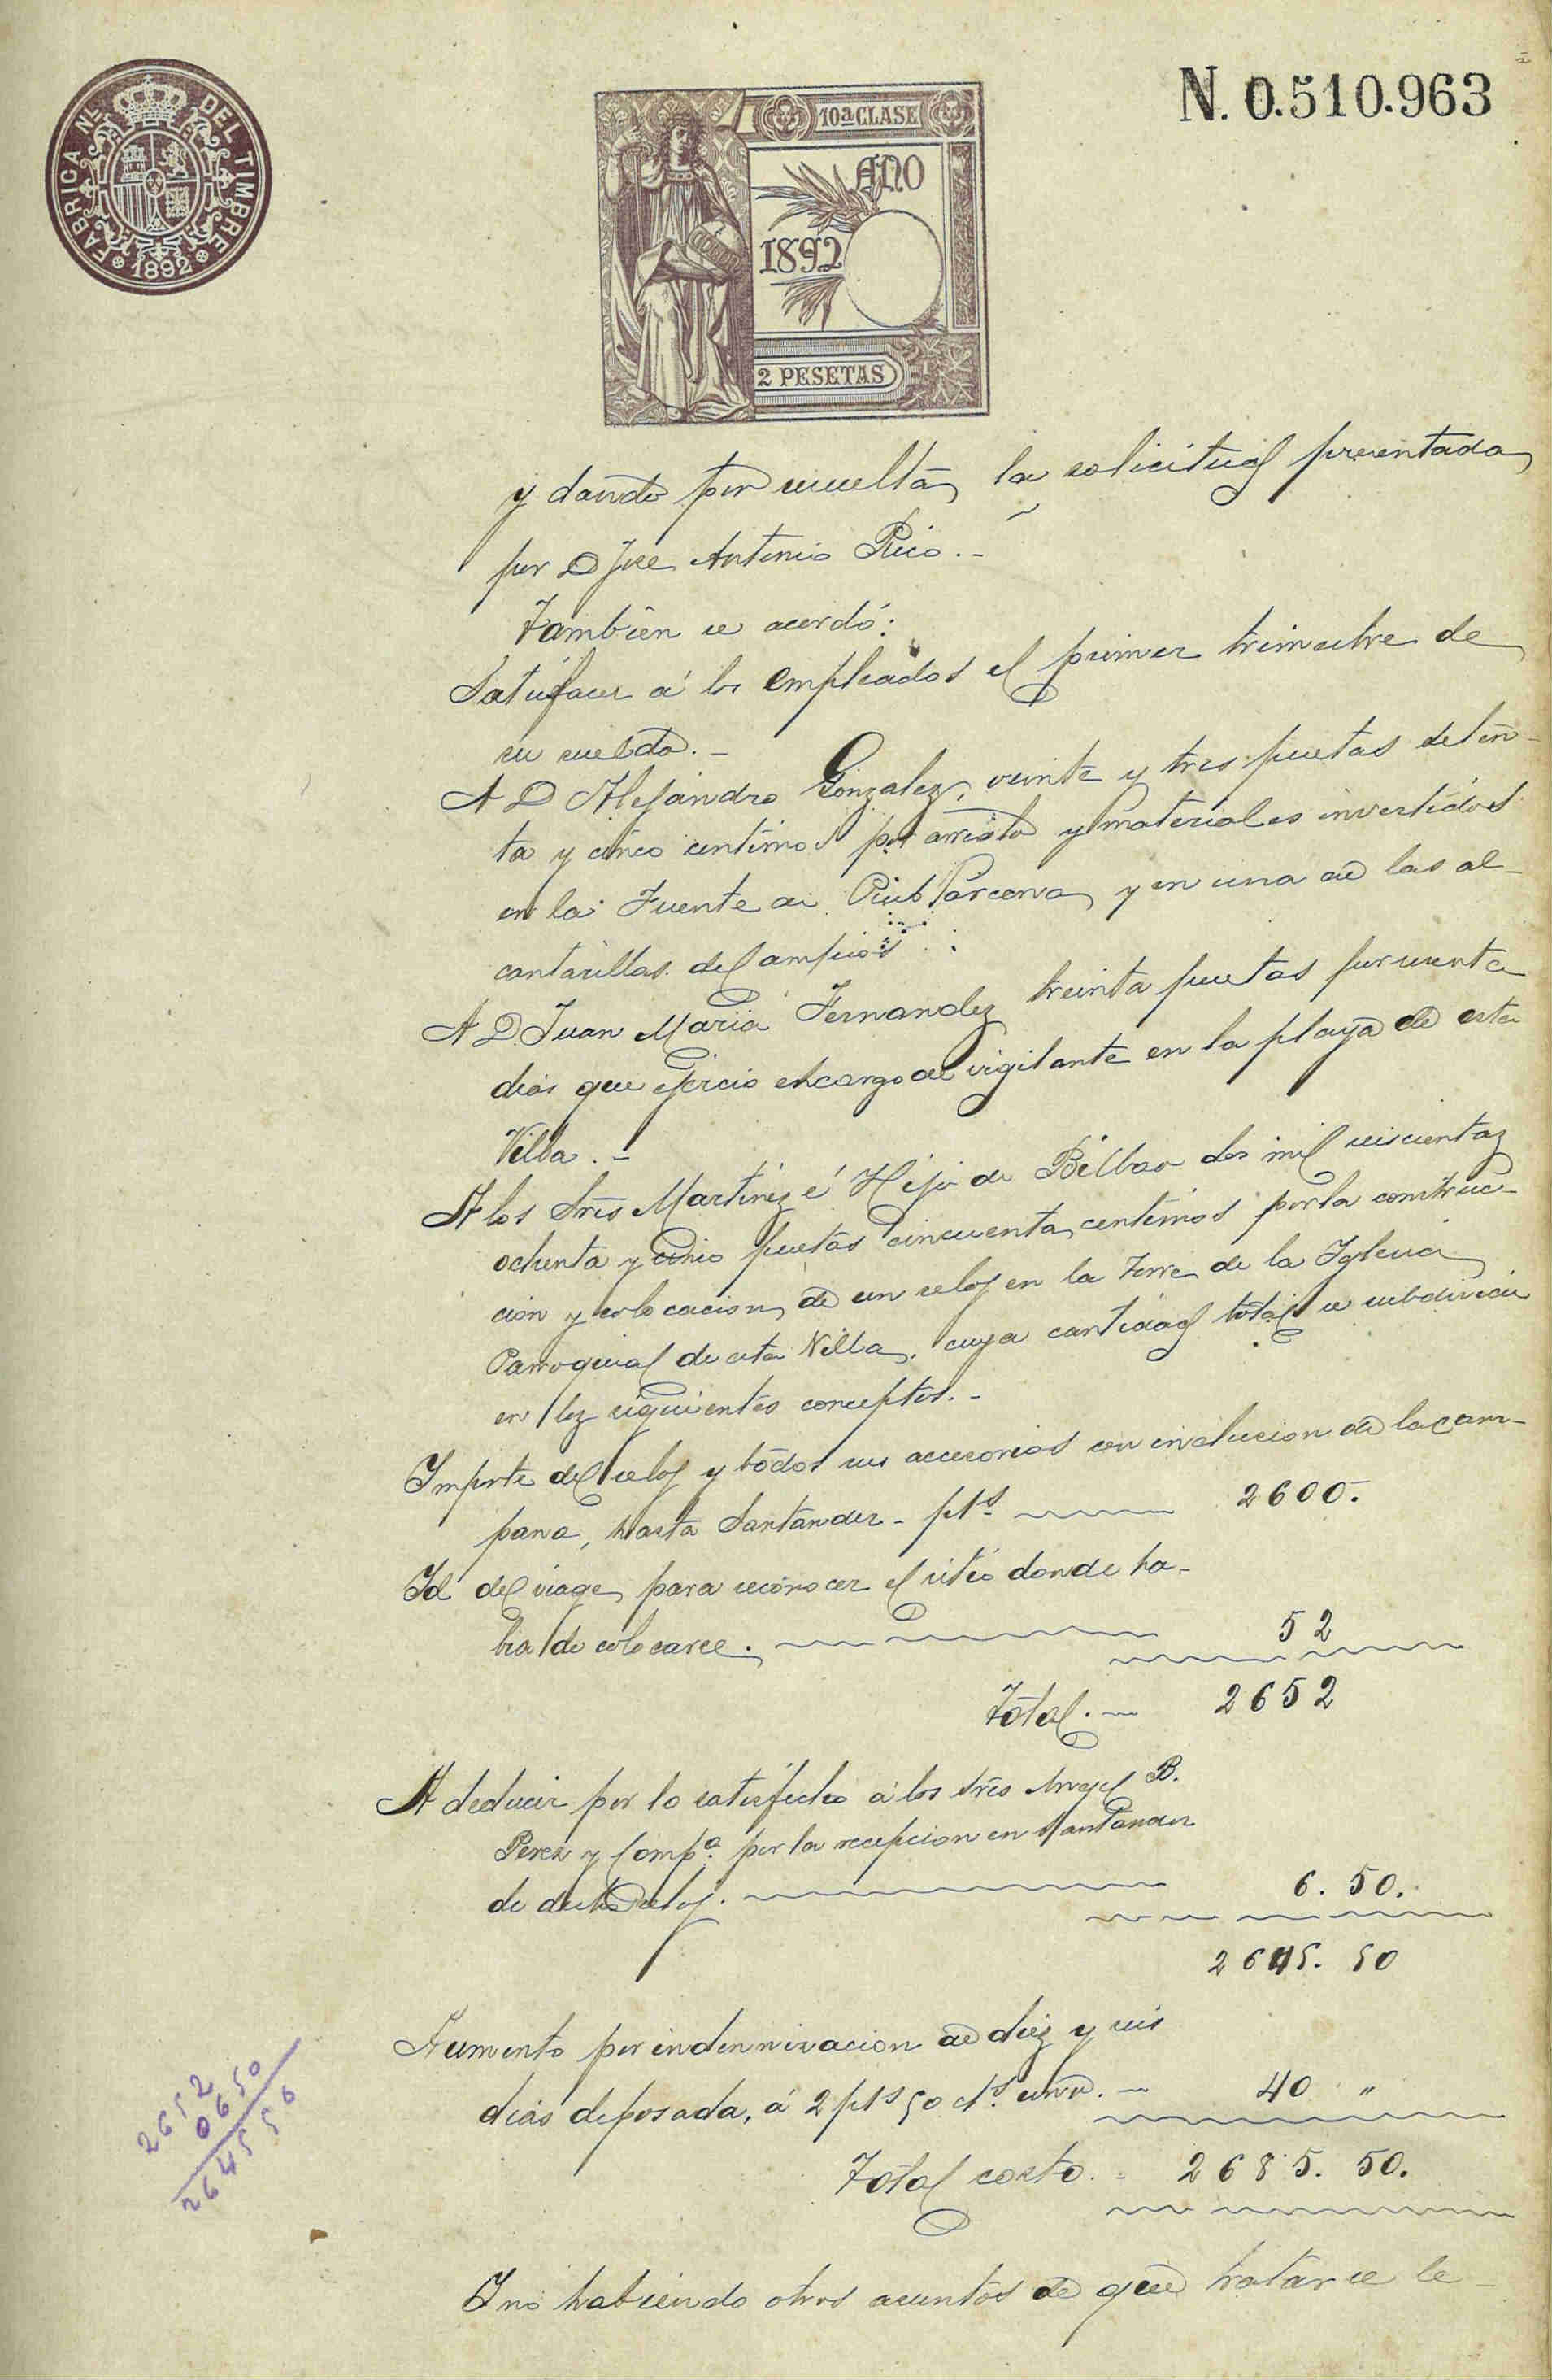 N. 0.510.963
FABRICA NL. DEL TIMBRE
1892
10ª CLASE
AÑO
1892
2 PESETAS
y dando por resuelta la solicitud presentada
por D Jose Antonio Rico.-
Tambien se acordó:
Satisfacer á los empleados el primer trimestre de
su sueldo.-
A D Alejandro Gonzalez, veinte y tres pesetas seten-
ta y cinco centimos por arreglo y materiales invertidos
en la Fuente de y en una de las al-
cantarillas del
A D. Juan Maria Fernandez treinta pesetas por
dias que ejercio el cargo de vigilante en la playa de esta
Villa.-
A los Sres Martinez é Hijo de Bilbao dos mil seiscientas
ochenta y cinco pesetas cincuenta centimos por la construc-
cion y colocacion de un reloj en la Torre de la Iglesia
Parroquial de esta Villa, cuya cantidad total se subdivide
en los siguientes conceptos.-
Importe del reloj y todos sus accesorios con inclusion de la cam-
pana, hasta Santander - pts 2600.
Id del viage para reconocer el sitio donde ha-
bia de colocarce. 52
Total.- 2652
A deducir por lo satisfecho á los Sres Angel B.
Perez y Compª. por la recepcion en Santander
de dicho reloj. 6. 50.
2645. 50
Aumento por indennizacion de diez y seis
dias de posada, á 2 pts 50 cts. uno.- 40 "
Total costo. 2685. 50.
2652
0650
264550
Y no habiendo otros asuntos de que tratar se le-